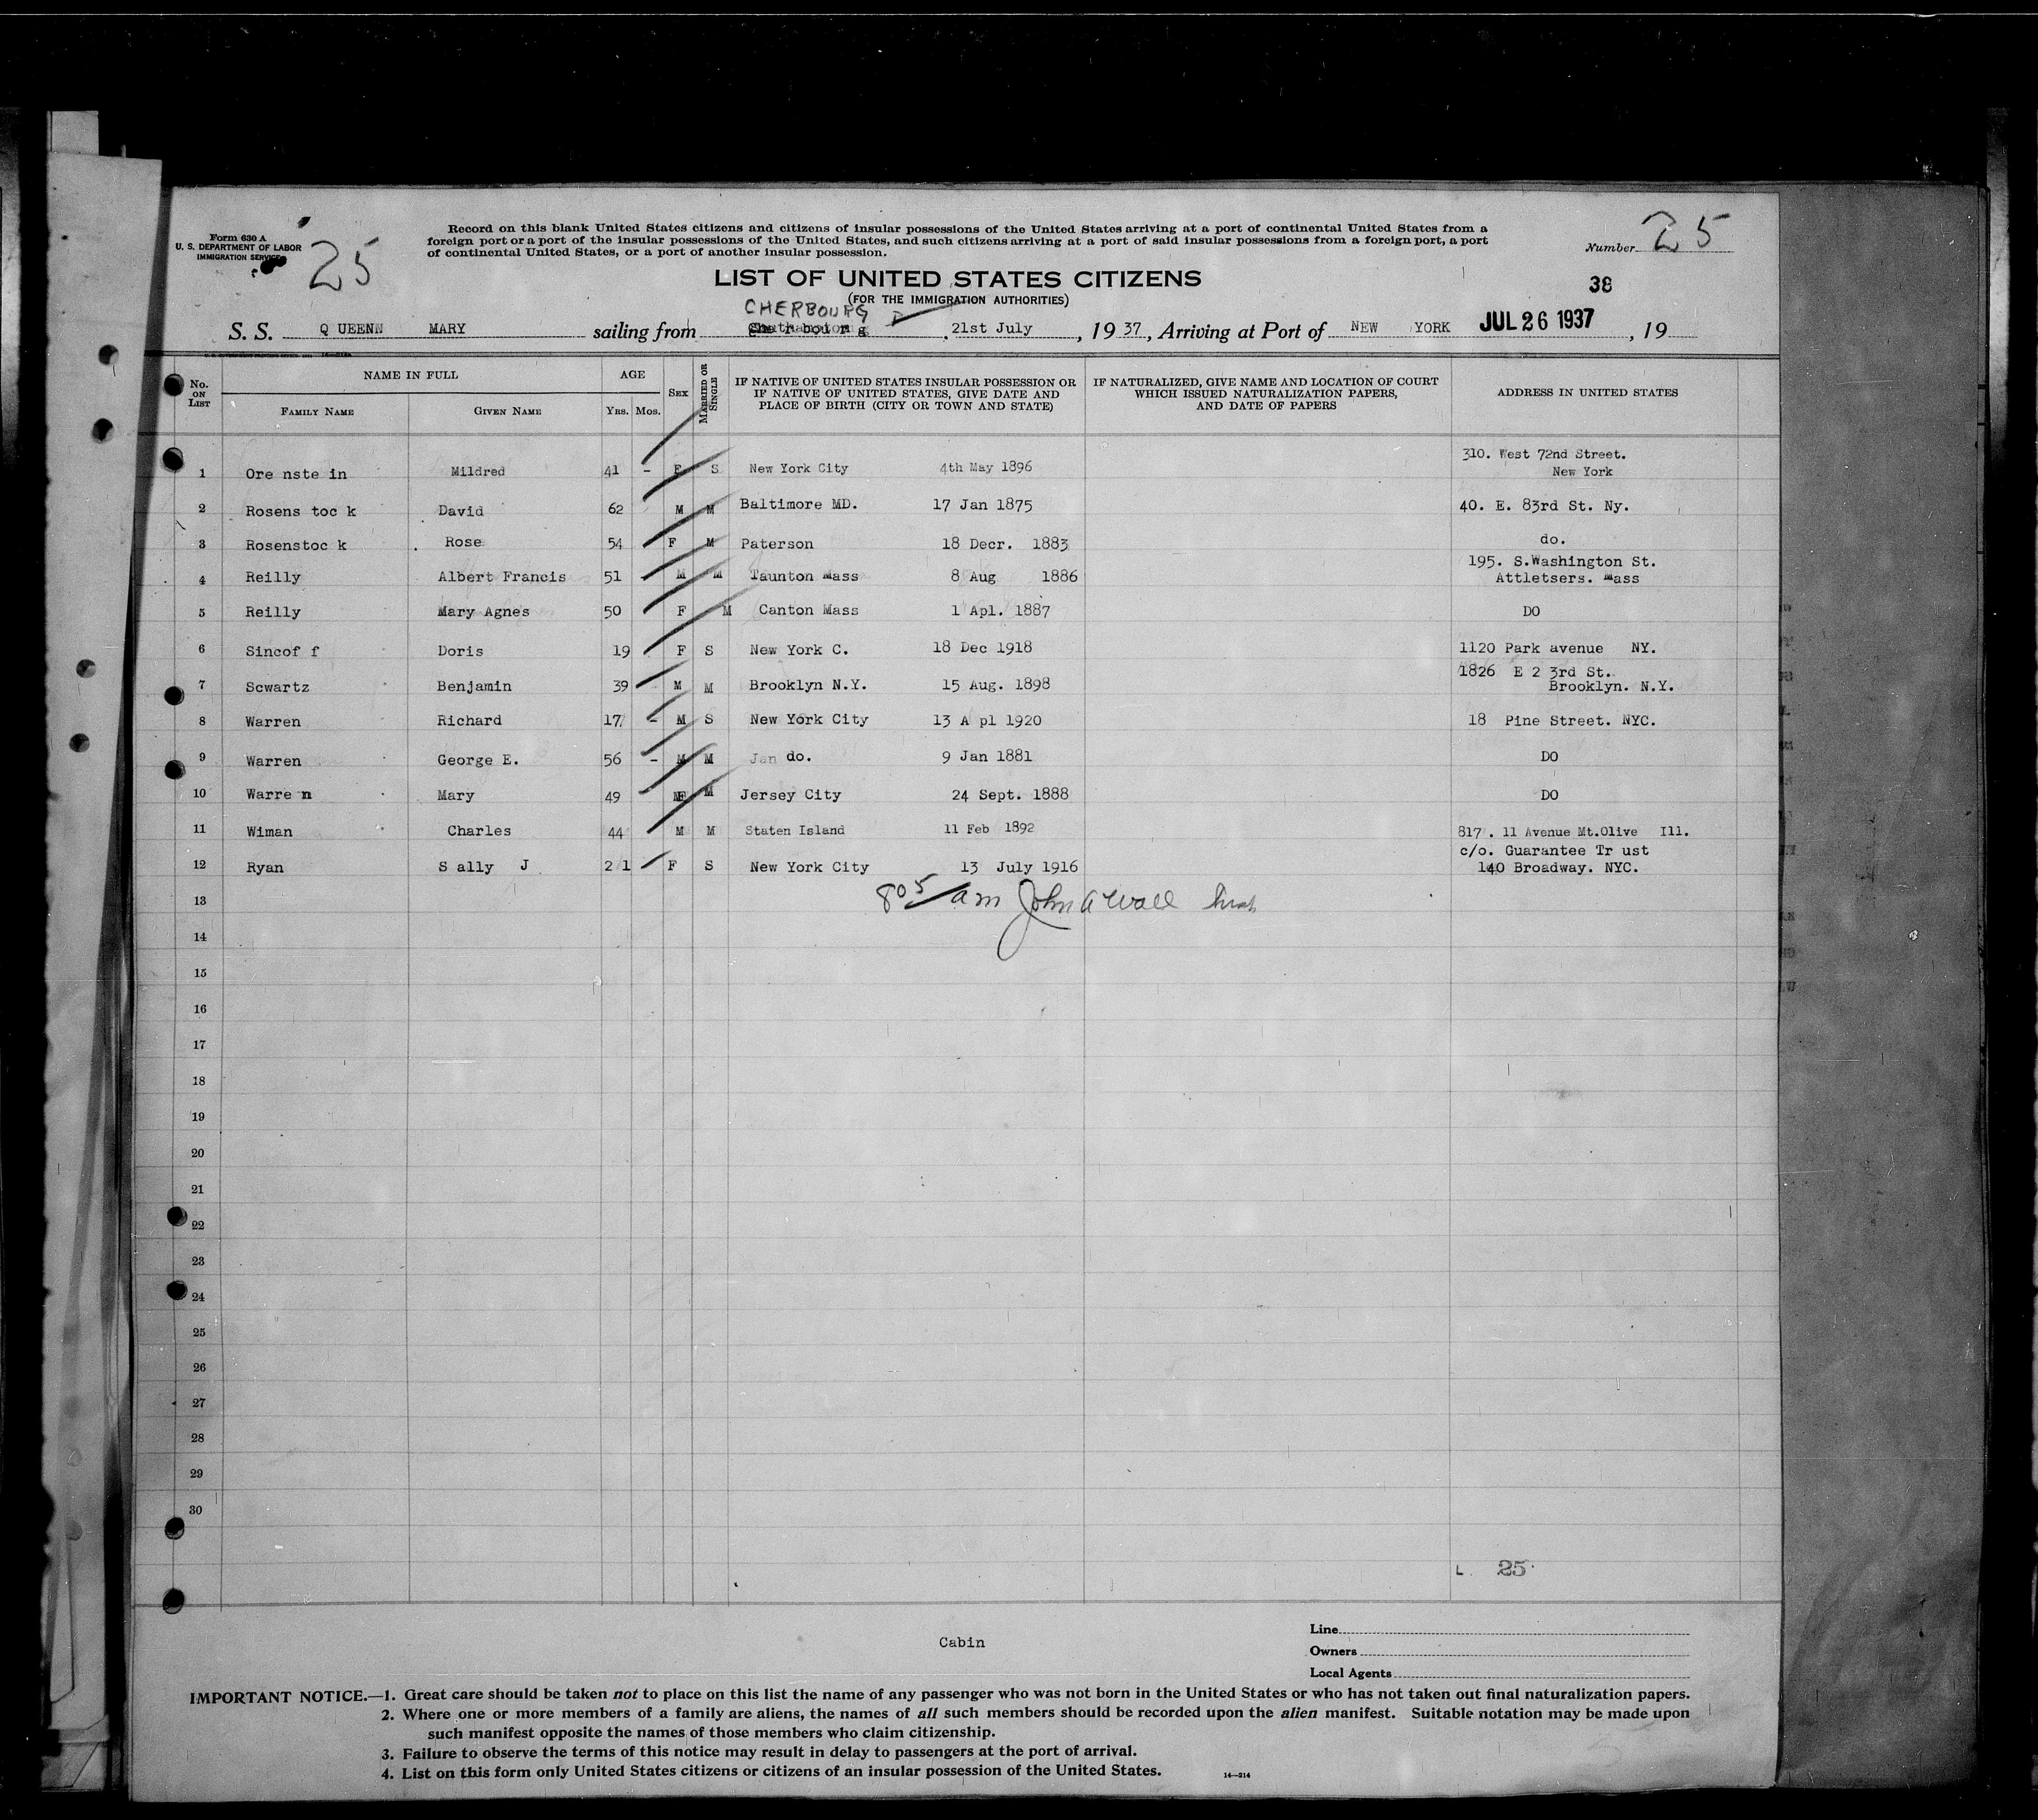 Form 630 A
U. S. DEPARTMENT OF LABOR
IMMIGRATION SERVICE
25
Record on this blank United States citizens and citizens of insular possessions of the United States arriving at a port of continental United States from a
foreign port or a port of the insular possessions of the United States, and such citizens arriving at a port of said insular possessions from a foreign port, a port
of continental United States, or a port of another insular possession.
Number 25
LIST OF UNITED STATES CITIZENS
(FOR THE IMMIGRATION AUTHORITIES)
38
CHERBOURG
S. S. Q UEENN MARY sailing from , 21st July , 19 37, Arriving at Port of NEW YORK JUL 26 1937 , 19
No. ON LIST
NAME IN FULL
FAMILY NAME
GIVEN NAME
AGE
Yrs. Mos.
SEX
MARRIED OR SINGLE
IF NATIVE OF UNITED STATES INSULAR POSSESSION OR
IF NATIVE OF UNITED STATES, GIVE DATE AND
PLACE OF BIRTH (CITY OR TOWN AND STATE)
IF NATURALIZED, GIVE NAME AND LOCATION OF COURT
WHICH ISSUED NATURALIZATION PAPERS,
AND DATE OF PAPERS
ADDRESS IN UNITED STATES
1 Ore nste in Mildred 41 - F S New York City 4th May 1896 310. West 72nd Street.
New York
2 Rosens toc k David 62 M M Baltimore MD. 17 Jan 1875 40. E. 83rd St. Ny.
3 Rosenstoc k . Rose 54 F M Paterson 18 Decr. 1883 do.
4 Reilly Albert Francis 51 M M Taunton Mass 8 Aug 1886 195. S.Washington St.
Attletsers. Mass
5 Reilly Mary Agnes 50 F M Canton Mass 1 Apl. 1887 DO
6 Sincof f Doris 19 F S New York C. 18 Dec 1918 1120 Park avenue NY.
7 Scwartz Benjamin 39 M M Brooklyn N.Y. 15 Aug. 1898 1826 E 2 3rd St.
Brooklyn. N.Y.
8 Warren Richard 17 - M S New York City 13 A pl 1920 18 Pine Street. NYC.
9 Warren George E. 56 - M M Jan do. 9 Jan 1881 DO
10 Warre n Mary 49 F M Jersey City 24 Sept. 1888 DO
11 Wiman Charles 44 M M Staten Island 11 Feb 1892 817 . 11 Avenue Mt.Olive Ill.
12 Ryan S ally J 2 1 F S New York City 13 July 1916 c/o. Guarantee Tr ust
140 Broadway. NYC.
13 805 am John A Wall
14
15
16
17
18
19
20
21
22
23
24
25
26
27
28
29
30
L. 25
Cabin
Line
Owners
Local Agents
IMPORTANT NOTICE.—1. Great care should be taken not to place on this list the name of any passenger who was not born in the United States or who has not taken out final naturalization papers.
2. Where one or more members of a family are aliens, the names of all such members should be recorded upon the alien manifest. Suitable notation may be made upon
such manifest opposite the names of those members who claim citizenship.
3. Failure to observe the terms of this notice may result in delay to passengers at the port of arrival.
4. List on this form only United States citizens or citizens of an insular possession of the United States.
14—214